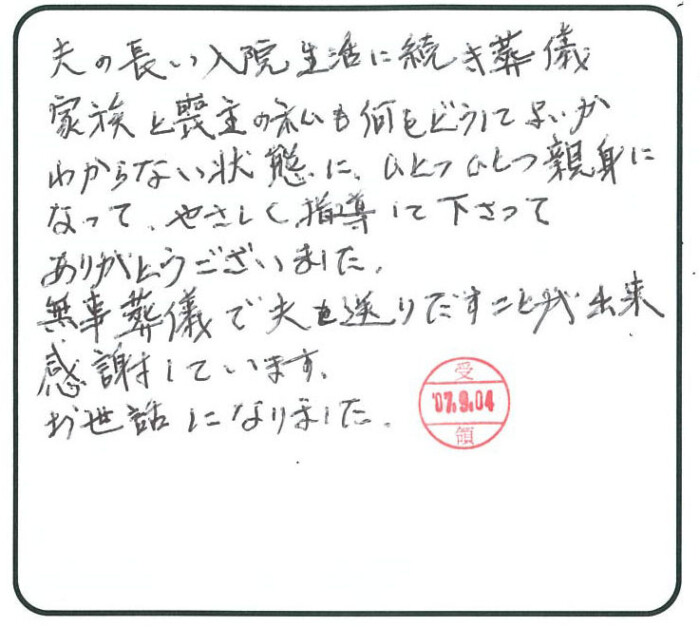 夫の長い入院生活に続き葬儀
家族と喪主の私も何をどうしてよいか
わからない状態に、ひとつひとつ親身に
なって、やさしく指導して下さって
ありがとうございました。
無事葬儀で夫を送りだすことが出来
感謝しています。
お世話になりました。
受
'07.9.04
領